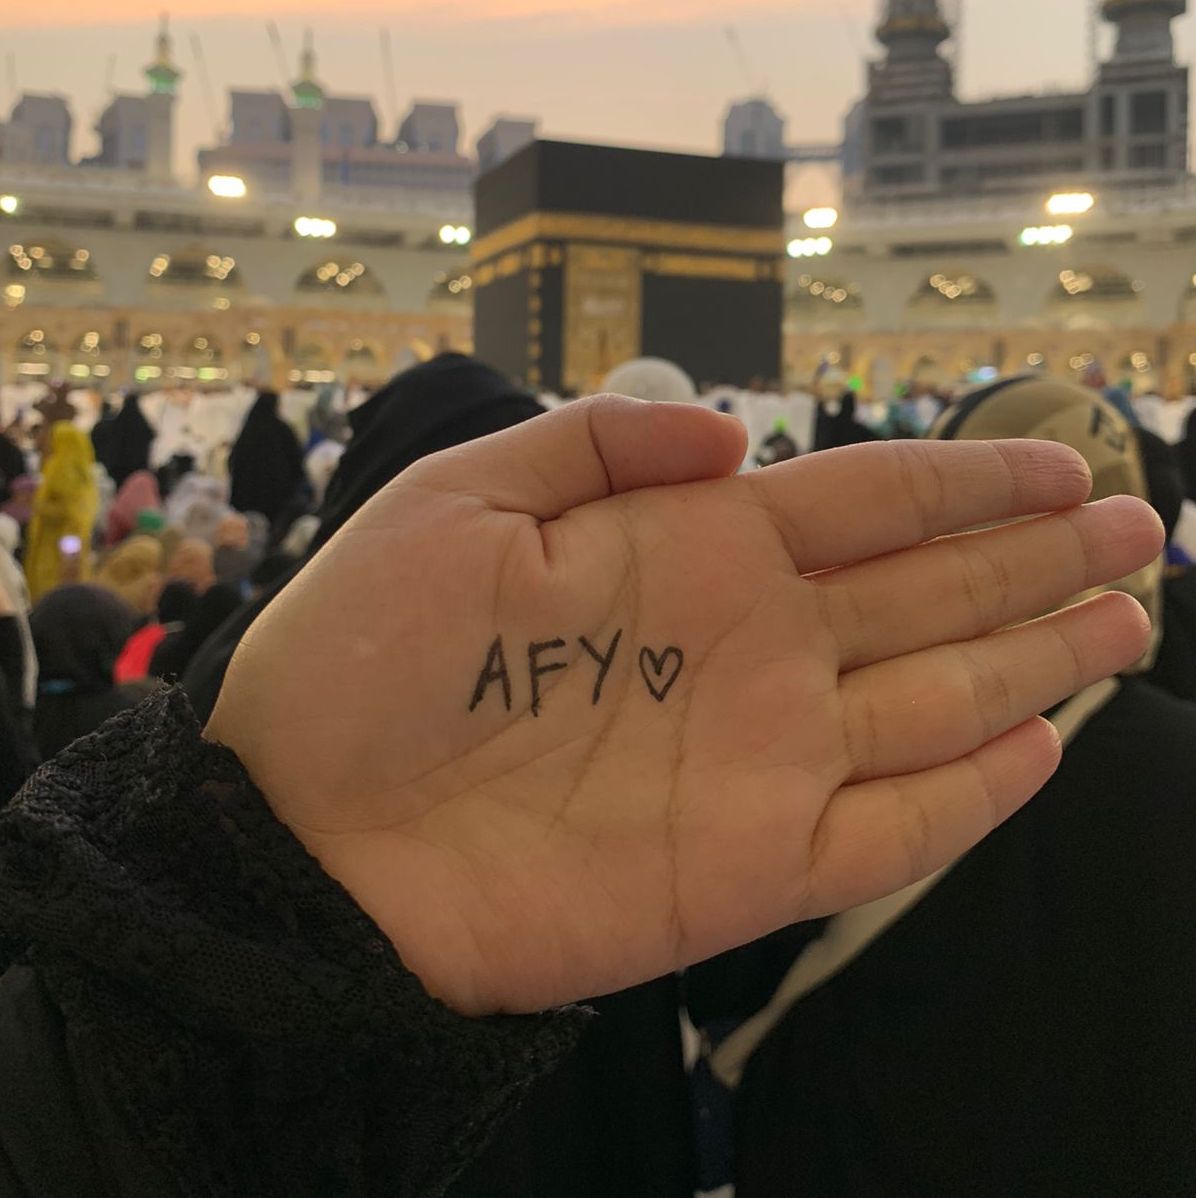 AFY♡